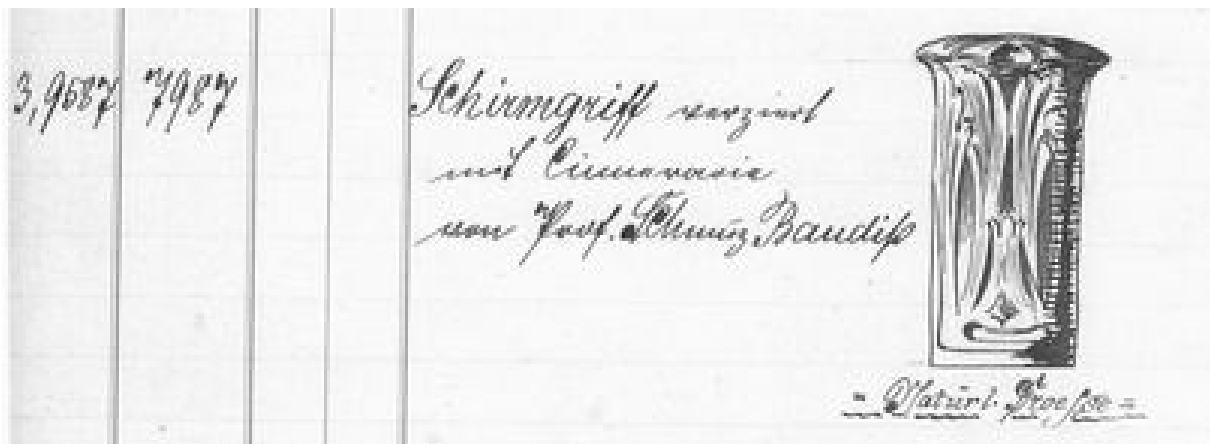 3,9687 7987 Schirmgriff verziert
mit Cinnerarie
von Prof. Schmuz Baudiß
- Natürl. Grösse -